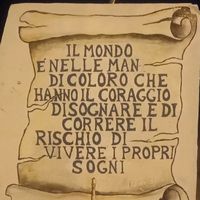 IL MONDO
E NELLE MAN
DI COLORO CHE
HANNO IL CORAGGIO
DISOGNARE E DI
CORRERE IL
RISCHIO DI
VIVERE I PROPRI
SOGNI